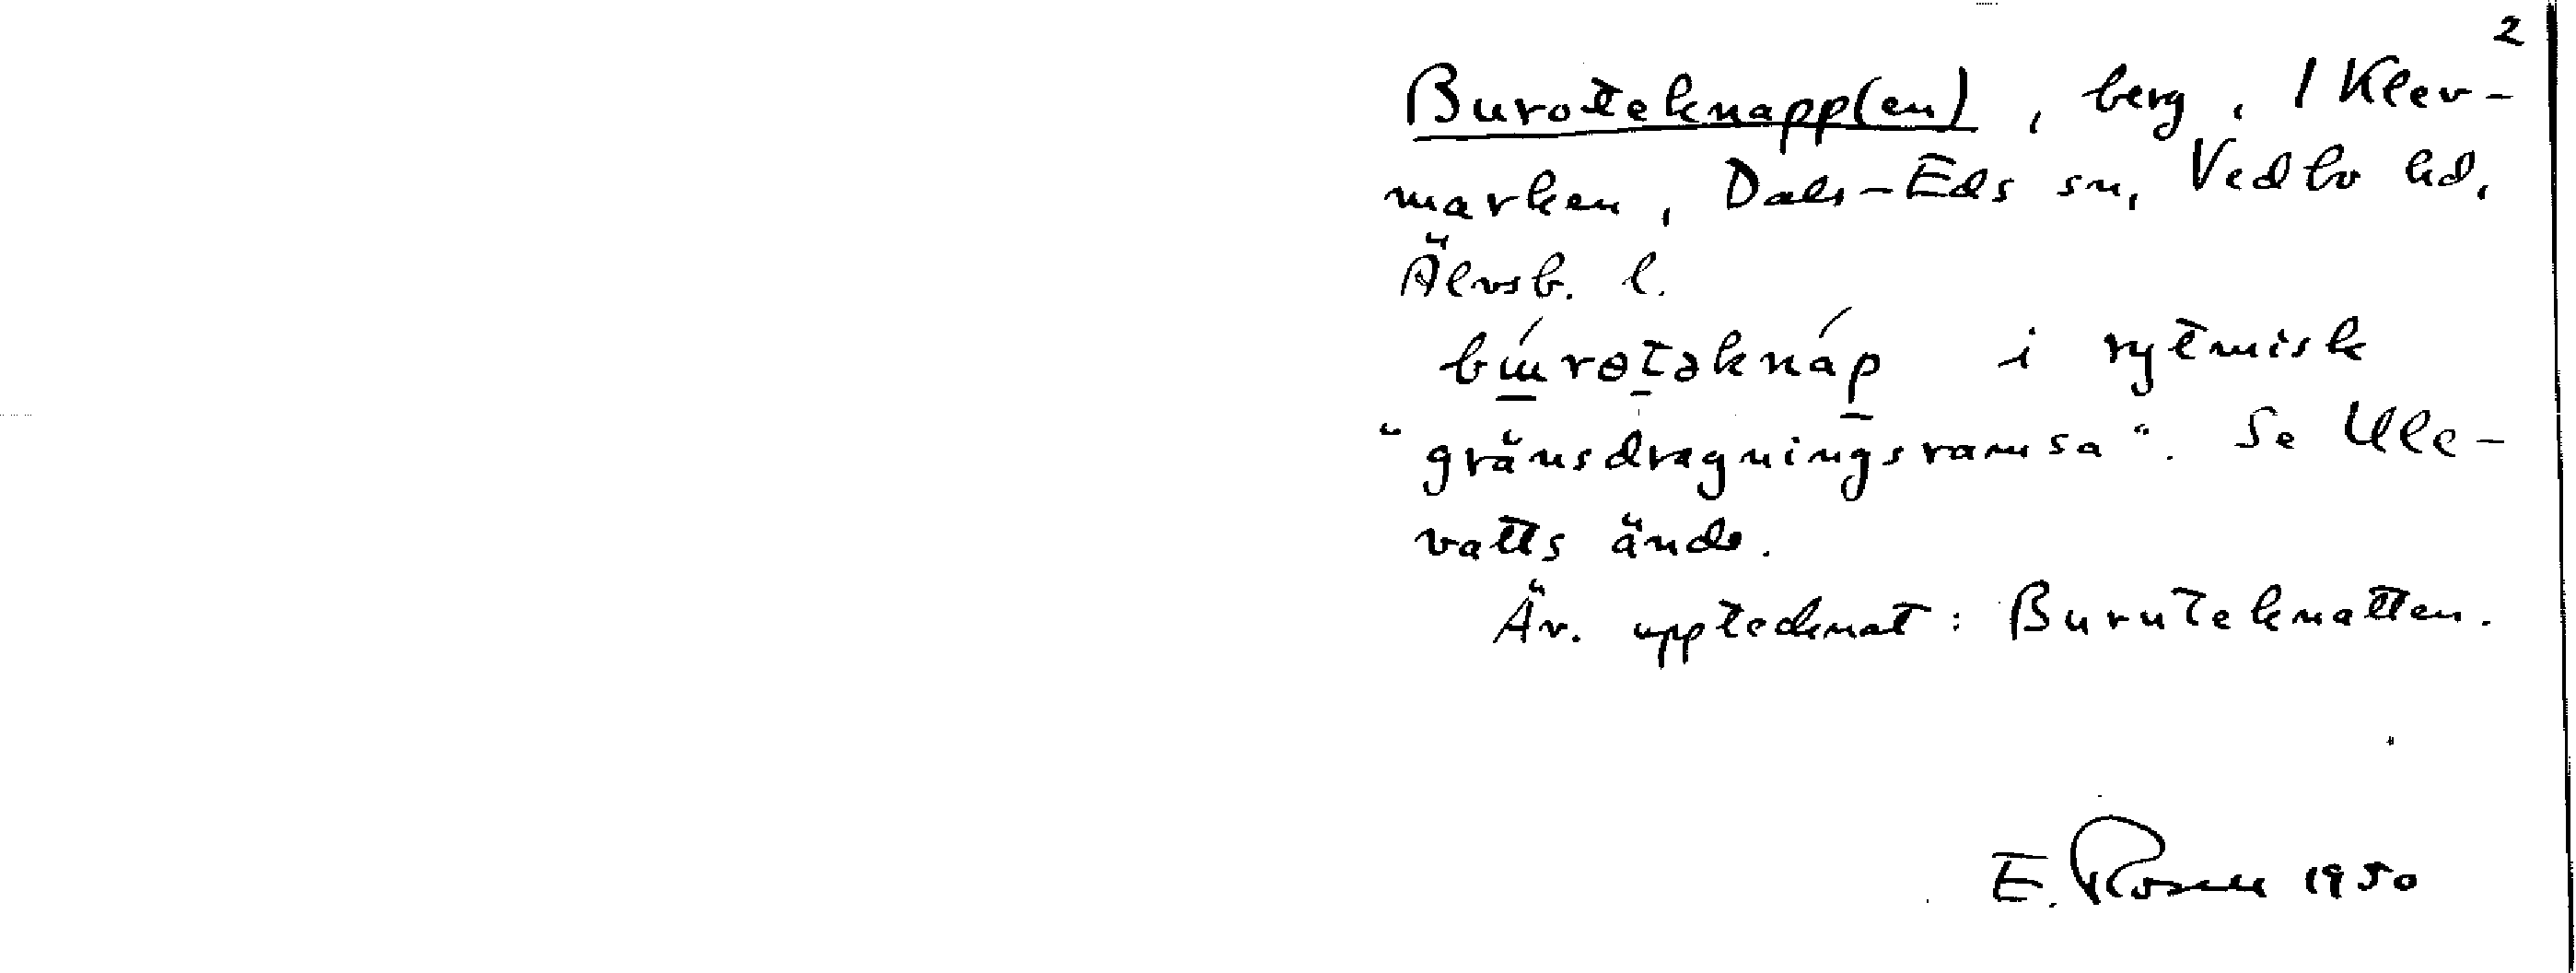 2
Burotteknapp(en), berg, I Klev-
marken, Dals-Eds sn, Vedbo hd,
Älvsb. l.
i rytmisk
"gränsdragningsramsa". Se Ulle-
vatts ände.
Äv. upptecknat: Buruteknatten.
E. Rosell 1950